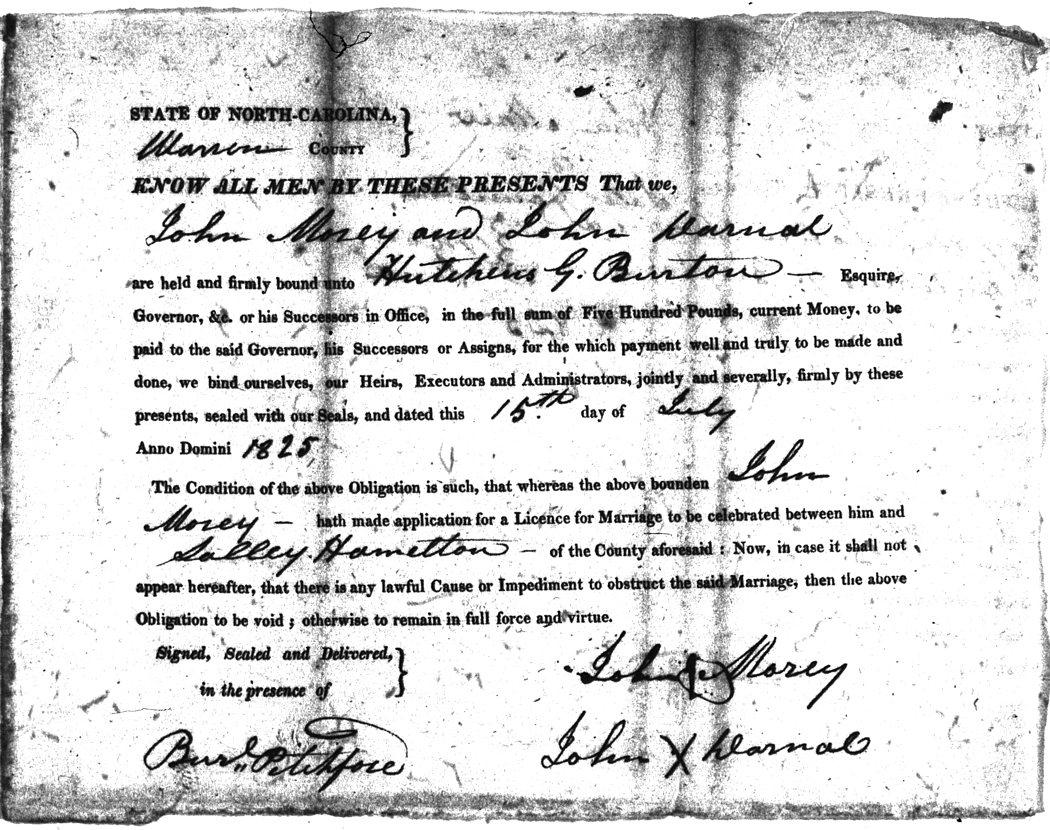 STATE OF NORTH-CAROLINA, }
Warren COUNTY
KNOW ALL MEN BY THESE PRESENTS That we,
John Mosey and John Darnal
are held and firmly bound unto Hutchens G. Burton — Esquire,
Governor, &c. or his Successors in Office, in the full sum of Five Hundred Pounds, current Money, to be
paid to the said Governor, his Successors or Assigns, for the which payment well and truly to be made and
done, we bind ourselves, our Heirs, Executors and Administrators, jointly and severally, firmly by these
presents, sealed with our Seals, and dated this 15th day of July
Anno Domini 1825,
The Condition of the above Obligation is such, that whereas the above bounden John
Mosey — hath made application for a Licence for Marriage to be celebrated between him and
Salley Hametton — of the County aforesaid : Now, in case it shall not
appear hereafter, that there is any lawful Cause or Impediment to obstruct the said Marriage, then the above
Obligation to be void ; otherwise to remain in full force and virtue.
Signed, Sealed and Delivered, }
in the presence of
John X Mosey
John X Darnal